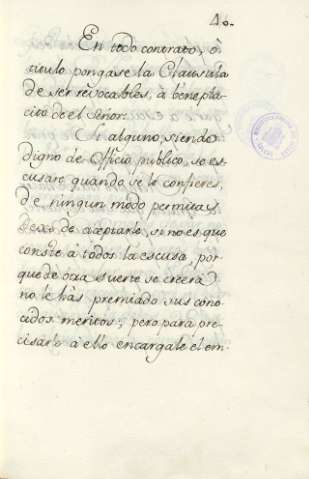 40.
En todo contrato, ò
titulo pongase la Clausula
de ser revocables, à beneplá-
cito de el Señor.
Si alguno, siendo
digno de Officio publico, so es-
cusare quando se le confieres,
de ningun modo permitas
dexe de aceptarle, si no es que
conste à todos la escusa, por
que de otra suerte se creerá
no le hàs premiado sus cono-
cidos meritos; pero para pre-
cisarlo à ello encargale el em-